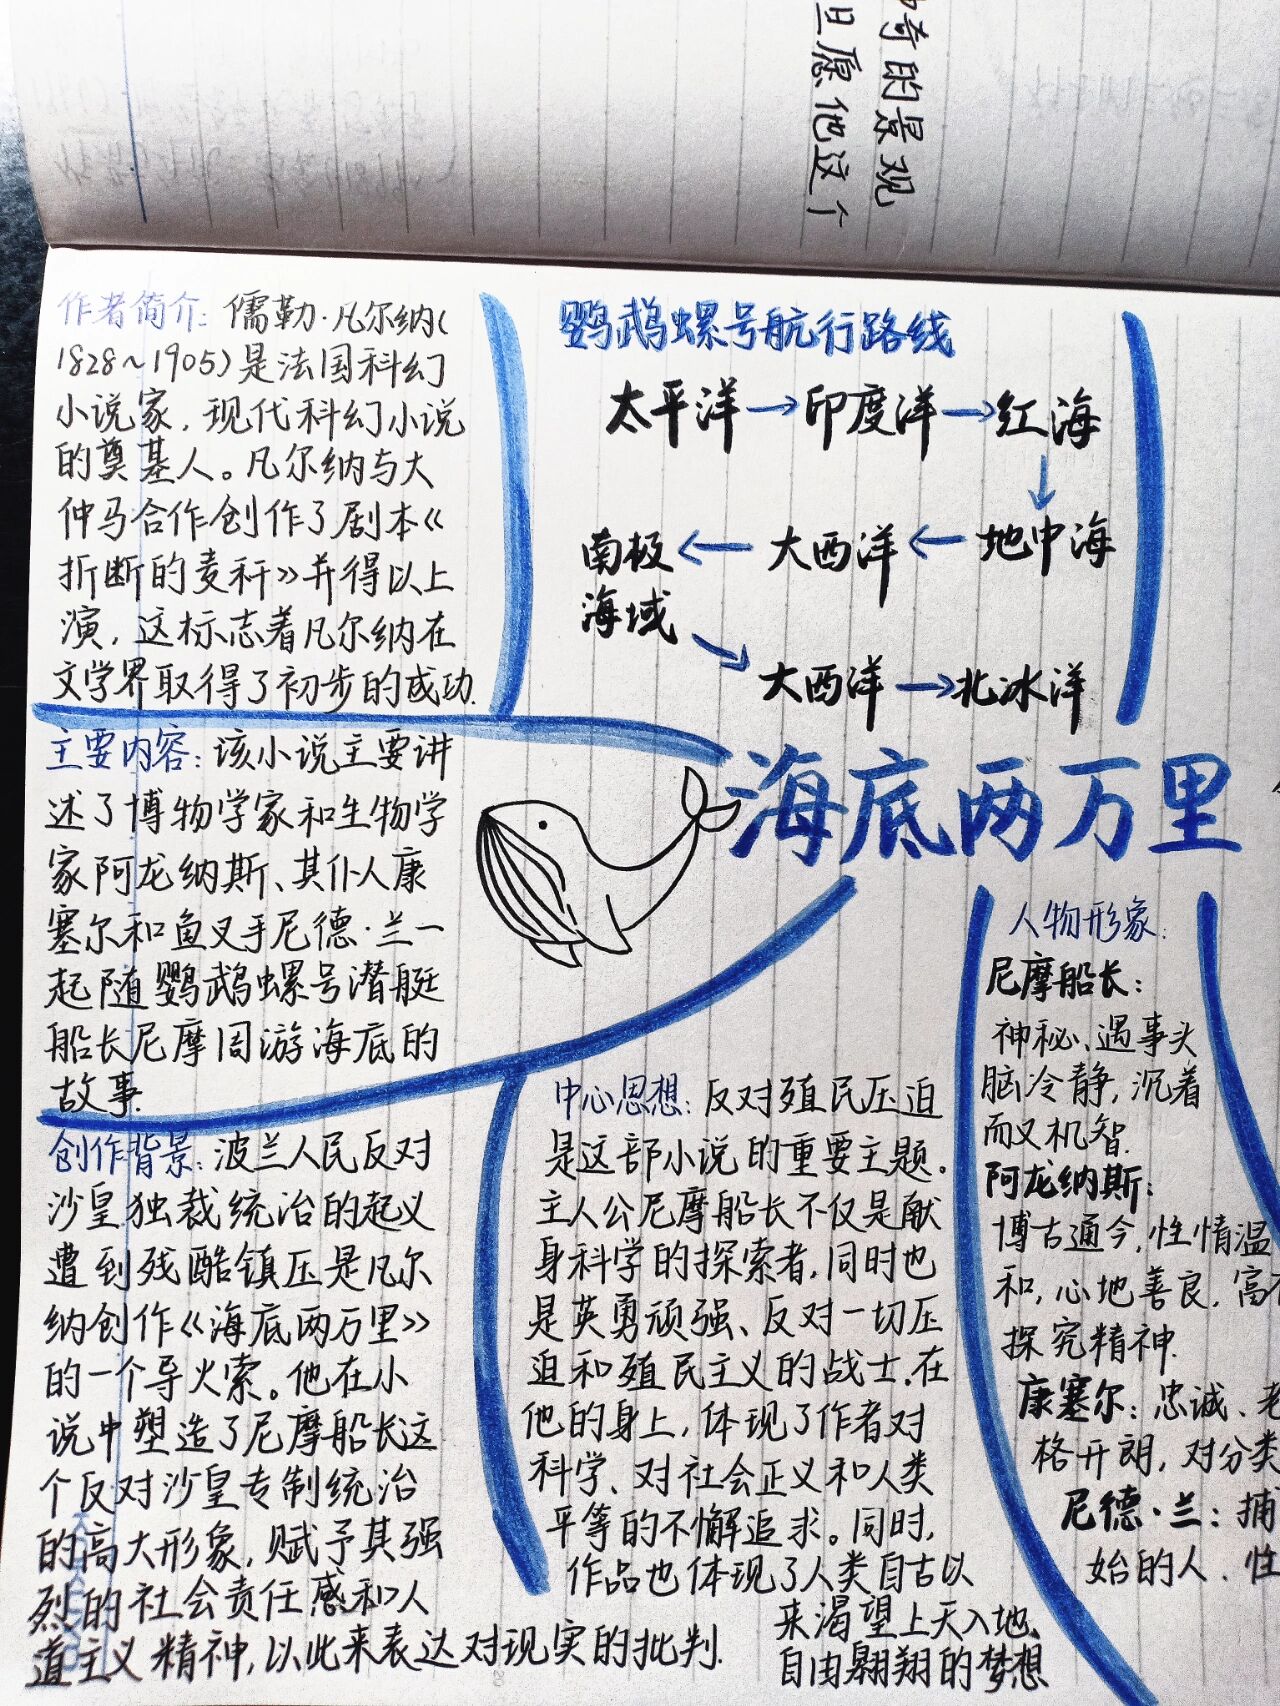 奇的景观
且愿他这个
作者简介：儒勒·凡尔纳(
1828~1905)是法国科幻
小说家，现代科幻小说
的奠基人。凡尔纳与大
仲马合作创作了剧本《
折断的麦秆》并得以上
演，这标志着凡尔纳在
文学界取得了初步的成功.
鹦鹉螺号航行路线
太平洋→印度洋→红海
↓
南极←大西洋←地中海
海域
↘
大西洋→北冰洋
海底两万里
主要内容：该小说主要讲
述了博物学家和生物学
家阿龙纳斯、其仆人康
塞尔和鱼叉手尼德·兰一
起随鹦鹉螺号潜艇
船长尼摩周游海底的
故事.
创作背景：波兰人民反对
沙皇独裁统治的起义
遭到残酷镇压是凡尔
纳创作《海底两万里》
的一个导火索。他在小
说中塑造了尼摩船长这
个反对沙皇专制统治
的高大形象，赋予其强
烈的社会责任感和人
道主义精神，以此来表达对现实的批判.
中心思想：反对殖民压迫
是这部小说的重要主题。
主人公尼摩船长不仅是献
身科学的探索者，同时也
是英勇顽强、反对一切压
迫和殖民主义的战士.在
他的身上，体现了作者对
科学、对社会正义和人类
平等的不懈追求。同时，
作品也体现了人类自古以
来渴望上天入地、
自由翱翔的梦想
人物形象：
尼摩船长：
神秘、遇事头
脑冷静，沉着
而又机智.
阿龙纳斯：
博古通今，性情温
和，心地善良，富
探究精神.
康塞尔：忠诚、
格开朗，对分类
尼德·兰：捕
始的人、性